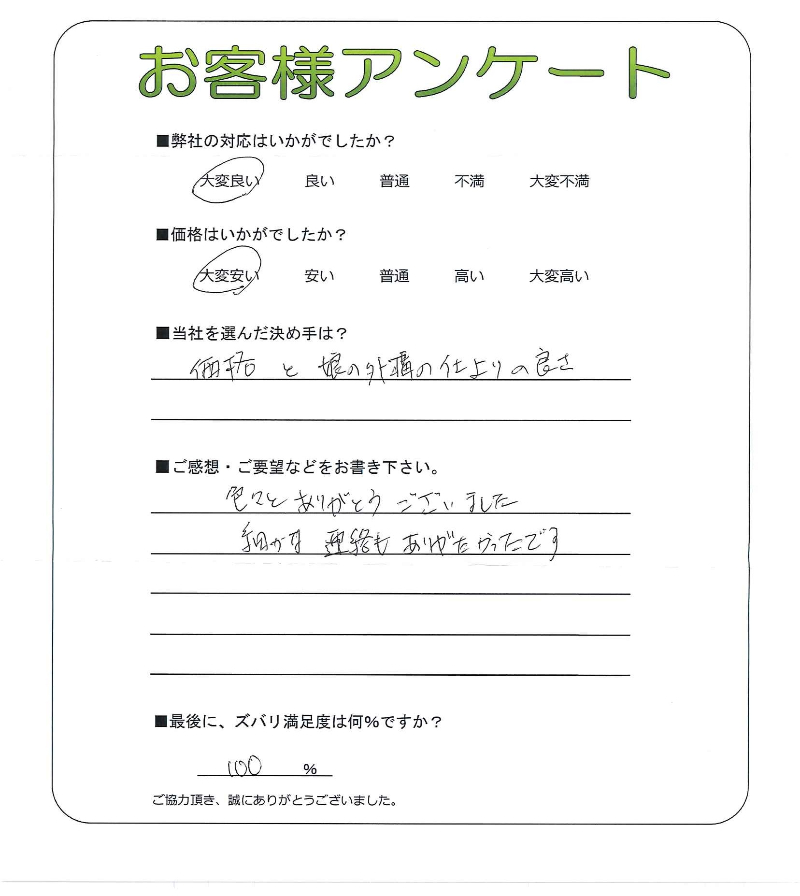 お客様アンケート
■弊社の対応はいかがでしたか？
大変良い 良い 普通 不満 大変不満
■価格はいかがでしたか？
大変安い 安い 普通 高い 大変高い
■当社を選んだ決め手は？
価格 と 娘の外構の仕上りの良さ
■ご感想・ご要望などをお書き下さい。
色々と ありがとう ございました
細かな 連絡も ありがたかったです
■最後に、ズバリ満足度は何％ですか？
100 %
ご協力頂き、誠にありがとうございました。